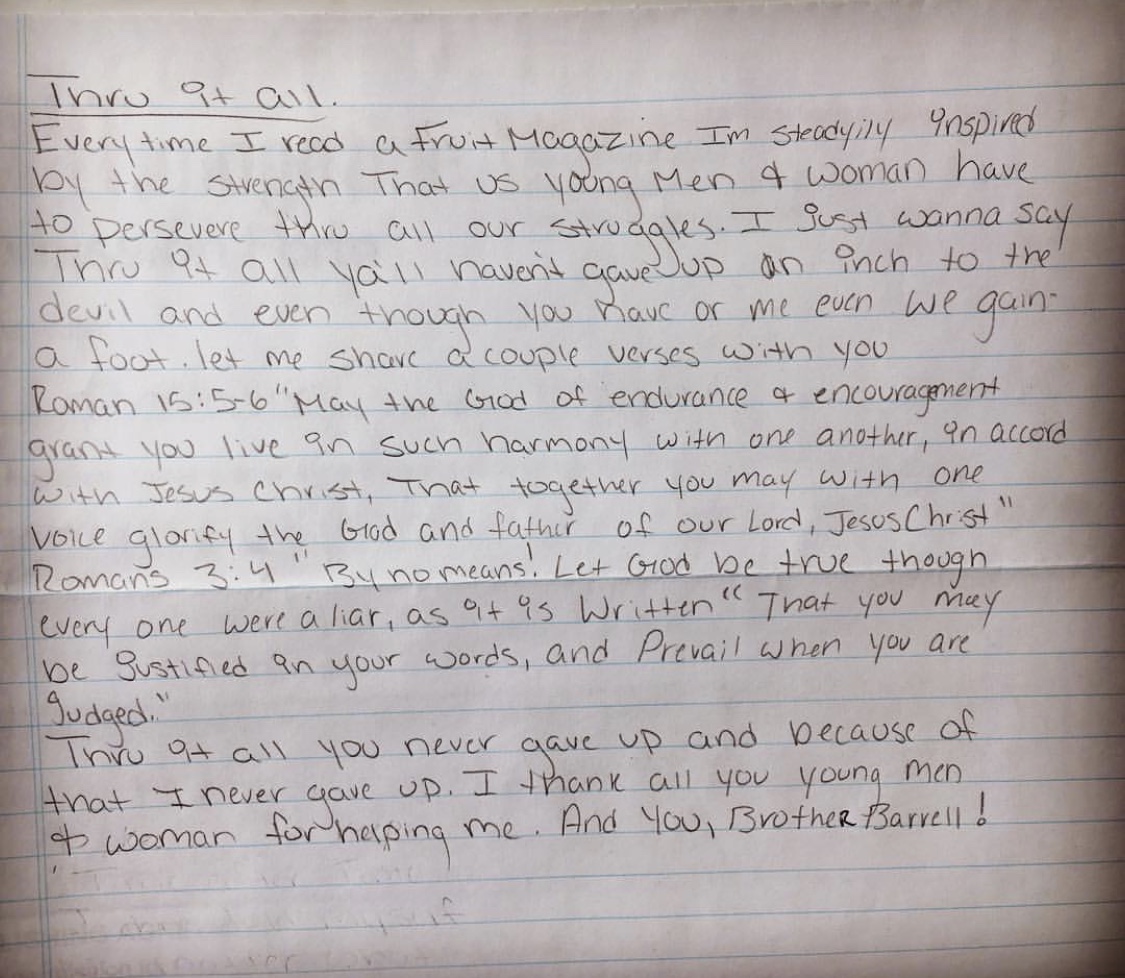 Thru It all.
Every time I read a Fruit Magazine Im steadyily Inspired
by the strength That us young Men & woman have
to persevere thru all our struggles. I Just wanna say
Thru It all ya'll haven't gave up an inch to the
devil and even though you have or me even we gain
a foot. let me share a couple verses with you
Roman 15:5-6 "May the God of endurance & encouragement
grant you live In such harmony with one another, In accord
with Jesus Christ, That together you may with one
voice glorify the God and father of our Lord, Jesus Christ"
Romans 3:4 "By no means! Let God be true though
every one were a liar, as It Is Written "That you may
be Justified In your words, and Prevail when you are
Judged."
Thru It all you never gave up and because of
that I never gave up. I thank all you young men
& woman for helping me. And You, Brother Barrell!